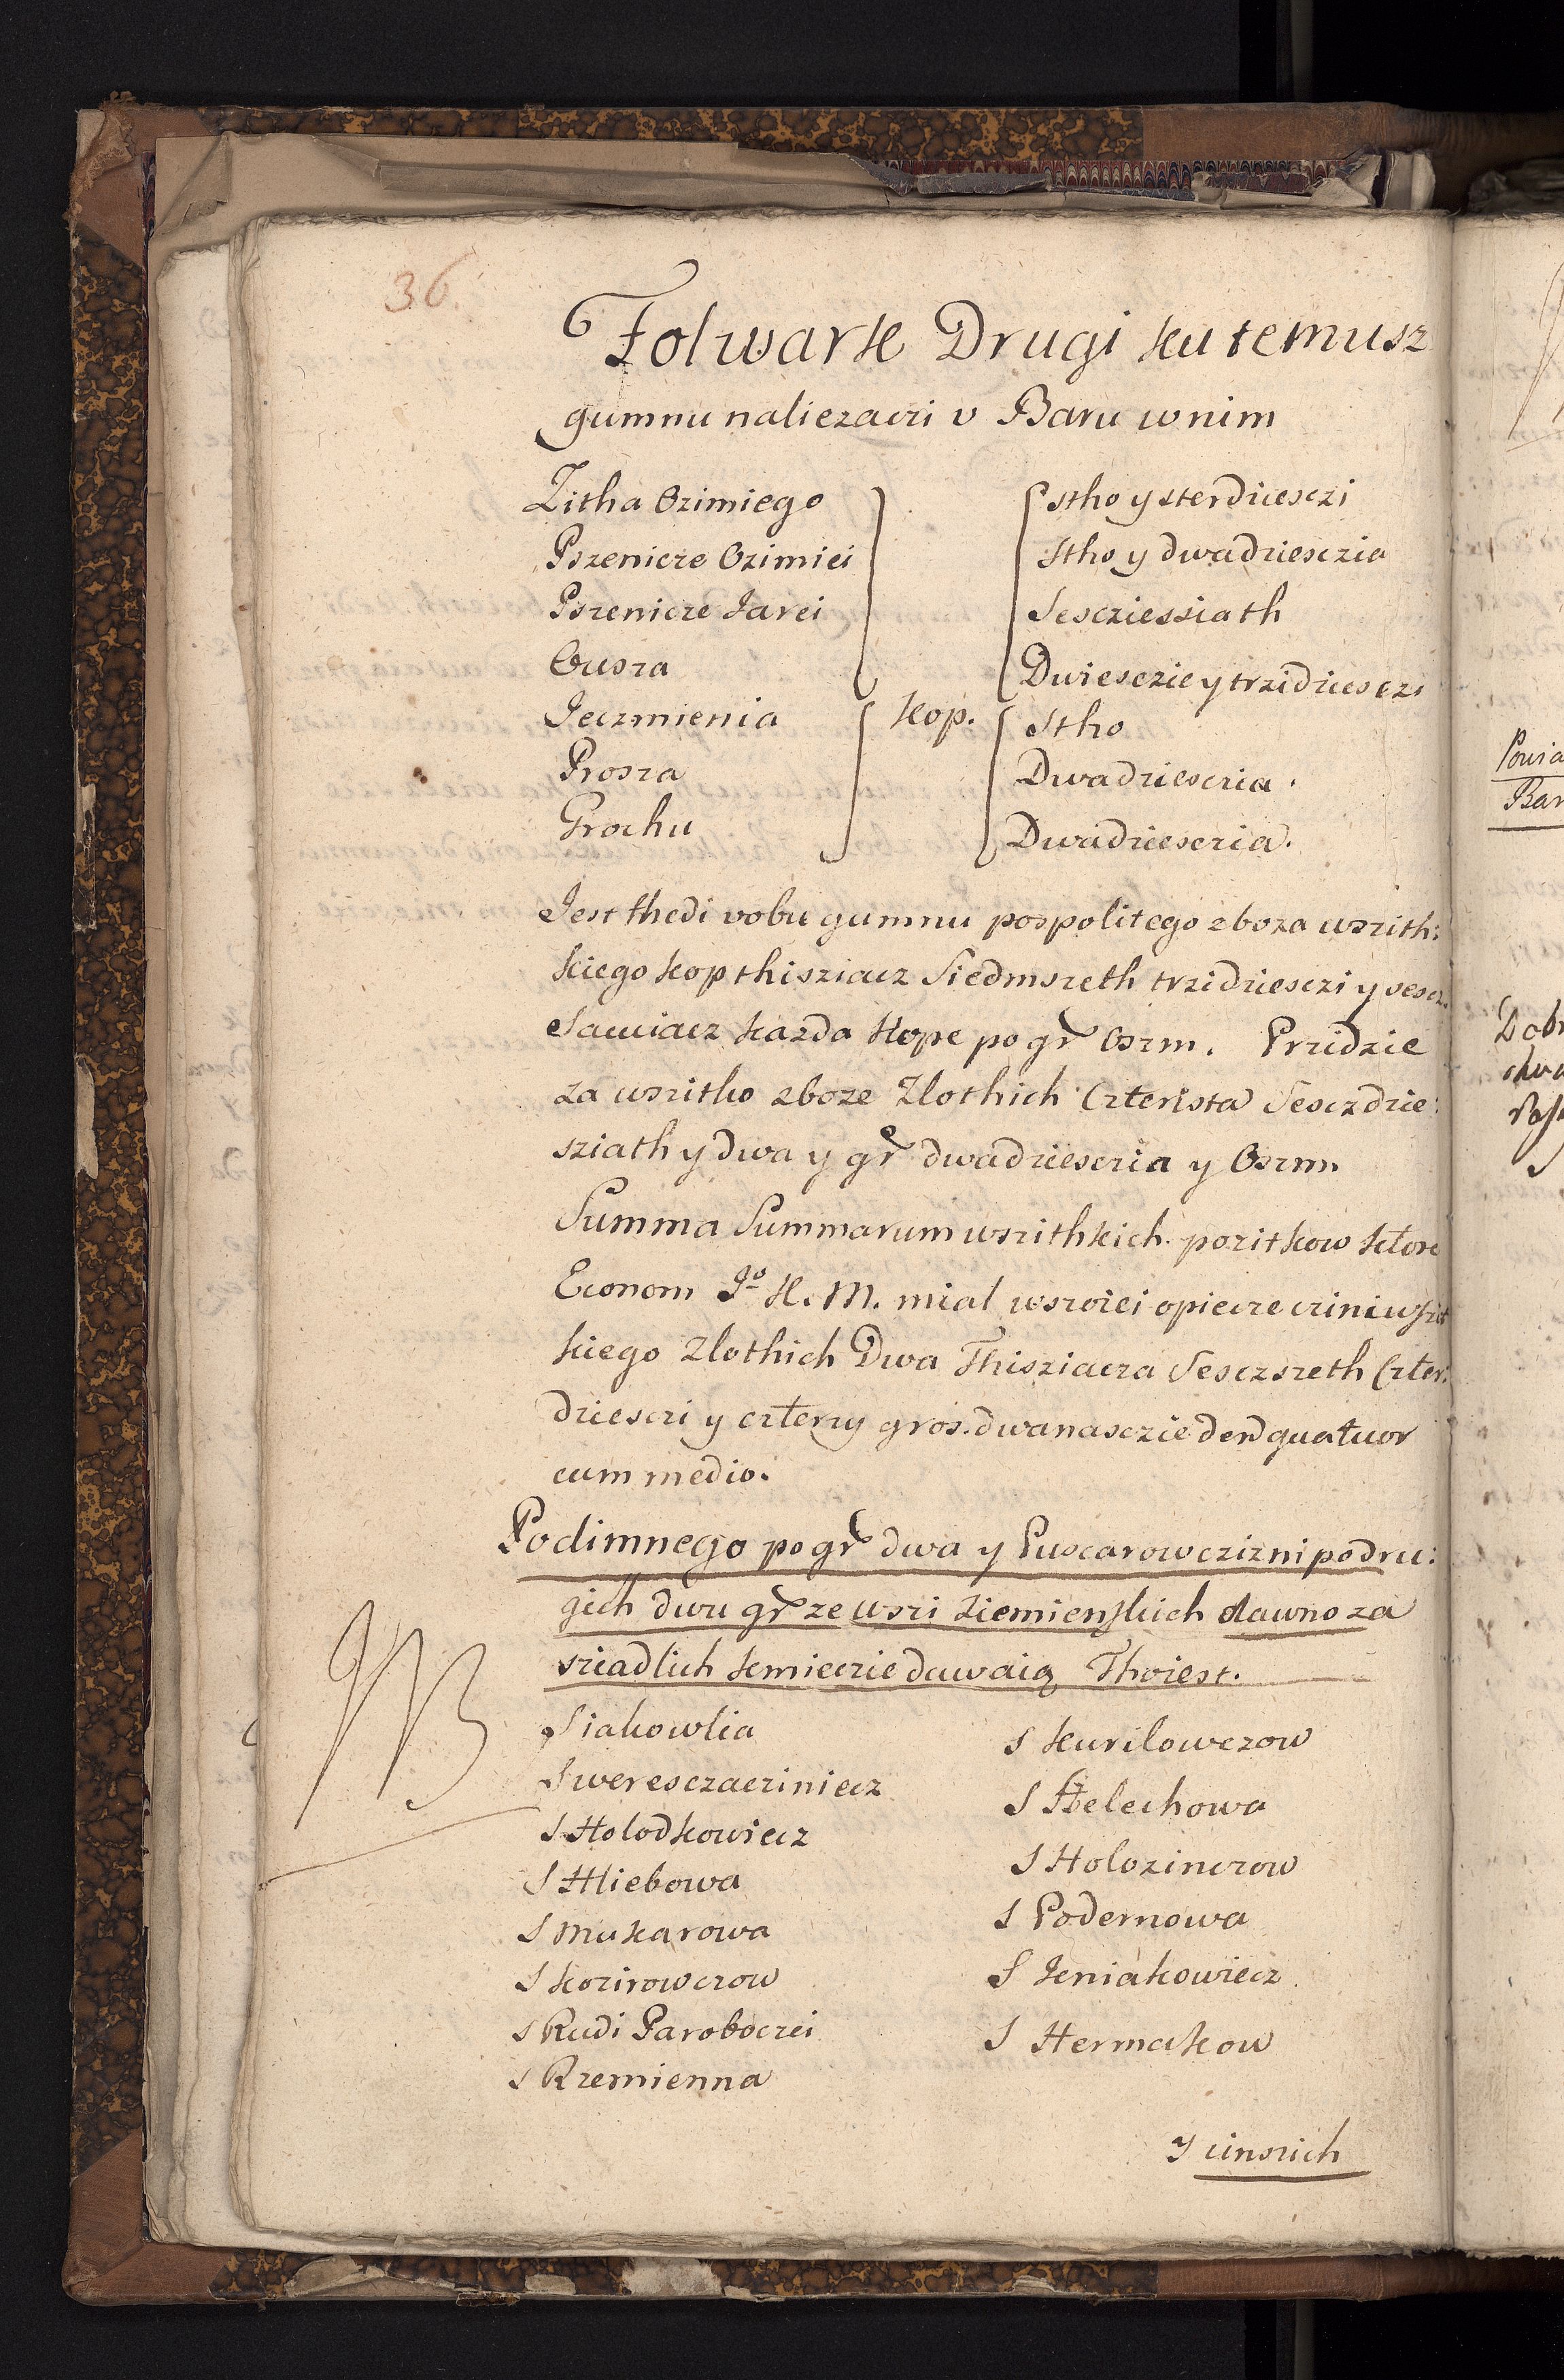 36.
Folwark Drugi ku temusz
gumnu naliezacri v Baru w nim
Zitha Ozimiego stho y sterdziesczi
Pszenicze Ozimiei Stho y dwadziesczia
Pszenicze Jarei Sescziessiath
Owsza Dwiesczie y trzidziesczi
Jeczmienia Kop. Stho
Prosza Dwadziesczia.
Grochu Dwadziesczia.
Jest thedi vobu gumnu pospolitego zboza wszith:
kiego kop thisziacz Siedmszeth trzidziesczi y sescz.
Sacuiacz kazda Kope po gr Oszm. Przidzie
za wszitko zboze Zlothich Czterista Sesczdzie:
sziath y dwa y gr dwadziesczia y Oszm.
Summa Summarum wszithkich pozitkow ktore
Econom Jo K. M. mial w szwiei opiecze czini wszit
kiego Zlothich Dwa Thisziacza Sesczszeth Czter:
dziesczi y cztery gros. dwanasczie den quatuor
cum medio.
Podimnego po gr dwa y Puscarowczizni po dru:
gich dwu gr ze wszi Ziemienskich dawno za
sziadlich kmieczie dawaią Tho iest.
S iakowlia
S weresczacziniecz
S Holodkowiecz
S Hliebowa
S Mukarowa
S kozirowczow
S Rudi Paroboczei
S Rzemienna
S kurilowczow
S Helechowa
S Holozinczow
S Podernowa
S Jeniakowiecz
S Hermakow
Y inszich
Powia
Bar
Dobr